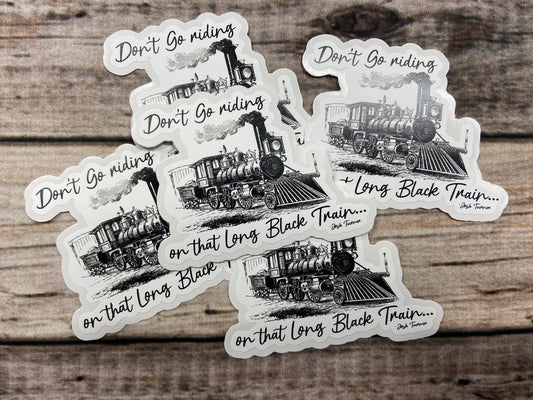 Don't Go riding
Don't Go riding
t Long Black Train...
Josh Turner
Don't Go riding
on that Long Black Train...
Josh Turner
Don't Go riding
on that Long Black
on that Long Black Train...
Josh Turner